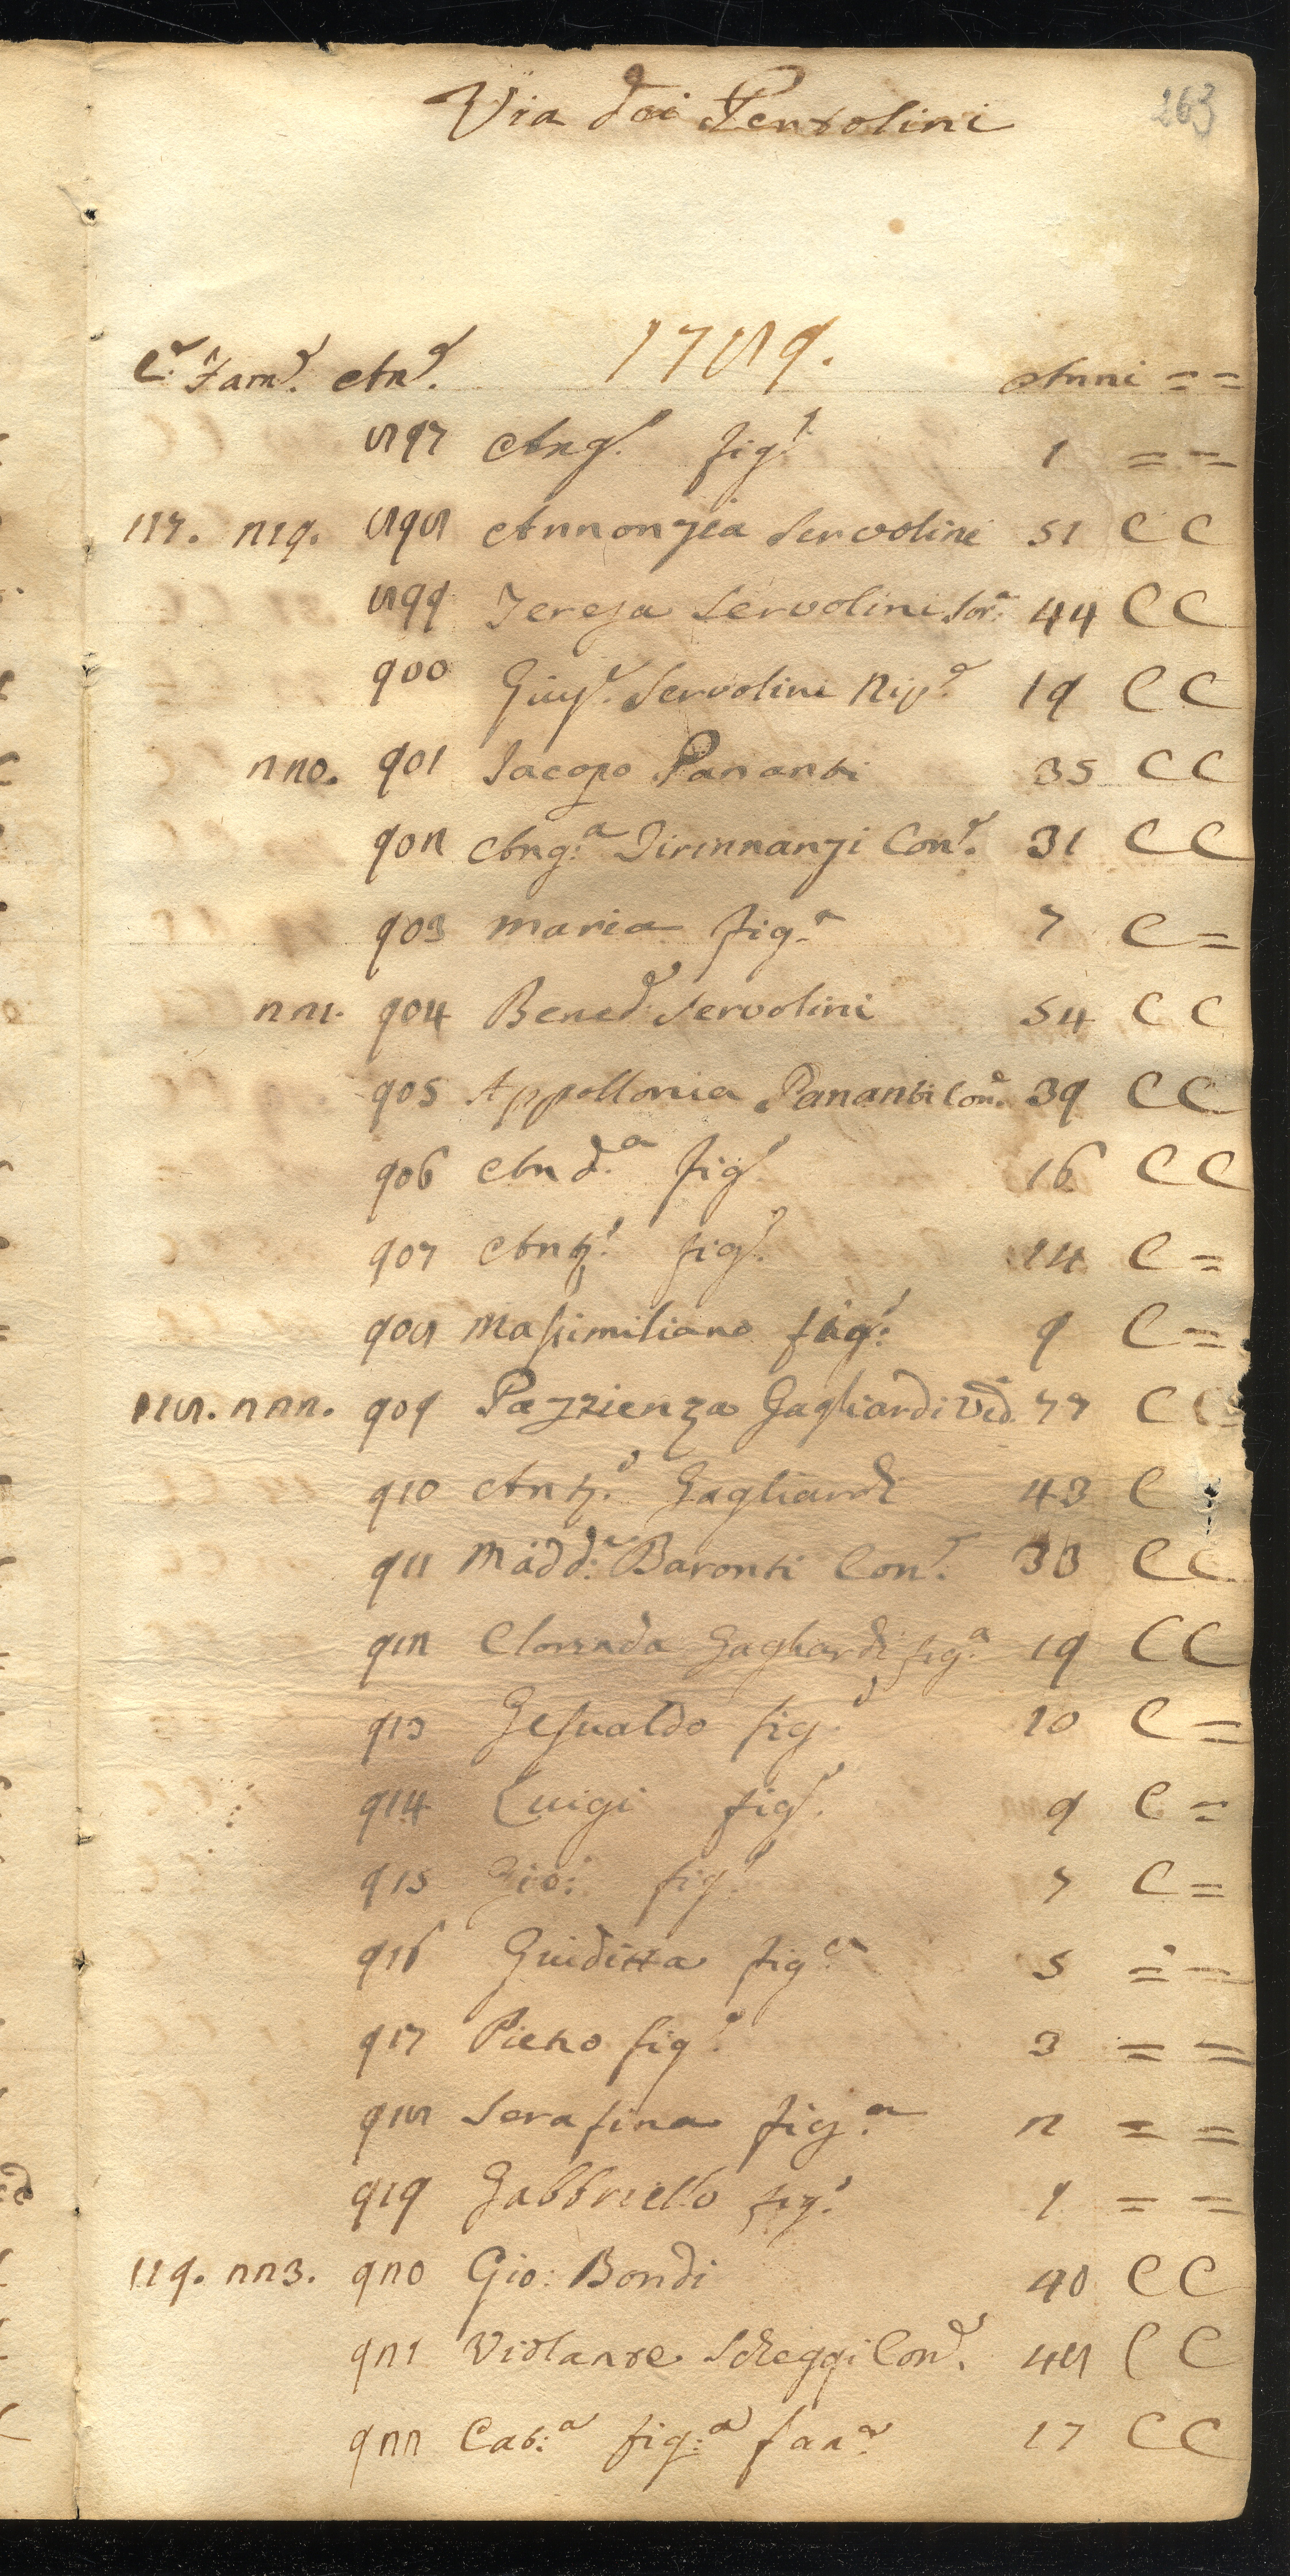 Via dei Pentolini
263
1789.
C.e Fam.e An.e Anni = =
897 Ang.o fig.o 1 = =
117. 219. 898 Annonzia Servolini 51 C C
899 Teresa Servolini Sor.a 44 C C
900 Giuse. Servolini Nip.e 19 C C
220. 901 Jacopo Pananti 35 C C
902 Ang:a Tirinnanzi Con.e 31 C C
903 Maria fig.a 7 C =
221. 904 Bened.o Servolini 54 C C
905 Appollonia Pananti Con.e 39 C C
906 And.a fig.o 16 C C
907 Ant.o fig.o 14 C =
908 Massimiliano fig:o 9 C =
118. 222. 909 Pazzienza Gagliardi Ved.a 77 C C
910 Ant.o Gagliardi 43 C
911 Madd:a Baronti Con.e 33 C C
912 Clorinda Gagliardi fig.a 19 C C
913 Gesualdo fig.o 10 C =
914 Luigi fig.o 9 C =
915 Gio: fig.o 7 C =
916 Giuditta fig.a 5 = =
917 Pietro fig.o 3 = =
918 Serafina fig.a 2 = =
919 Gabbriello fig.o 1 = =
119. 223. 920 Gio: Bondi 40 C C
921 Violante Scheggi Con.e 48 C C
922 Cat:a fig:a fan.a 17 C C